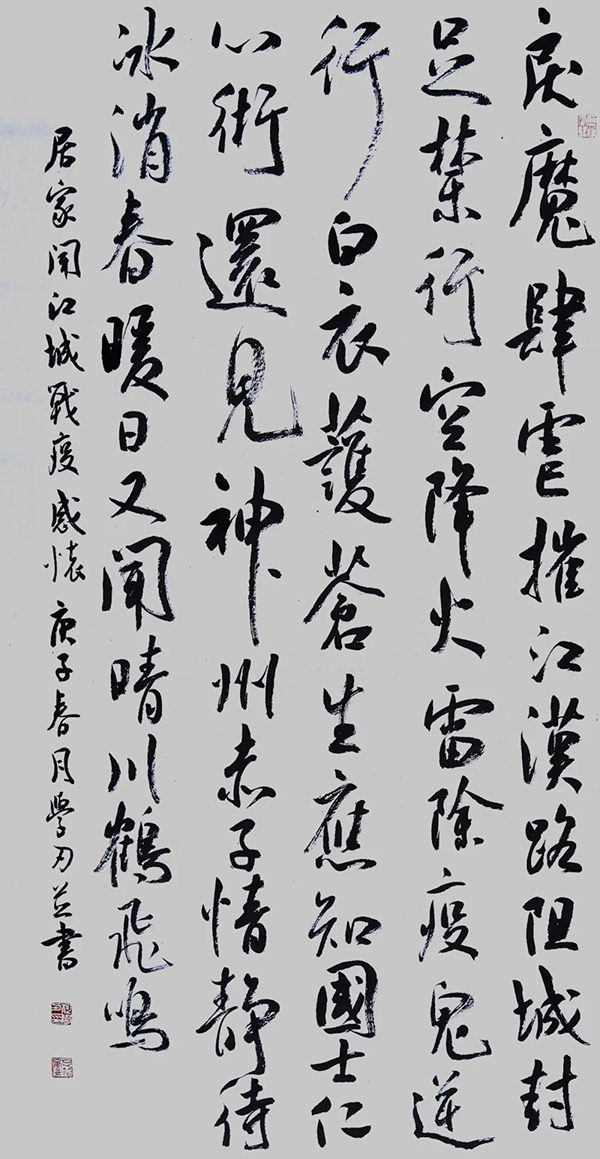 戾魔肆虐摧江漢路阻城封
足禁行空降火雷除疫鬼逆
行白衣護蒼生應知國士仁
心術還見神州赤子情靜待
冰消春暖日又聞晴川鶴飛鳴
居家聞江城戰疫感懷庚子春月學並書